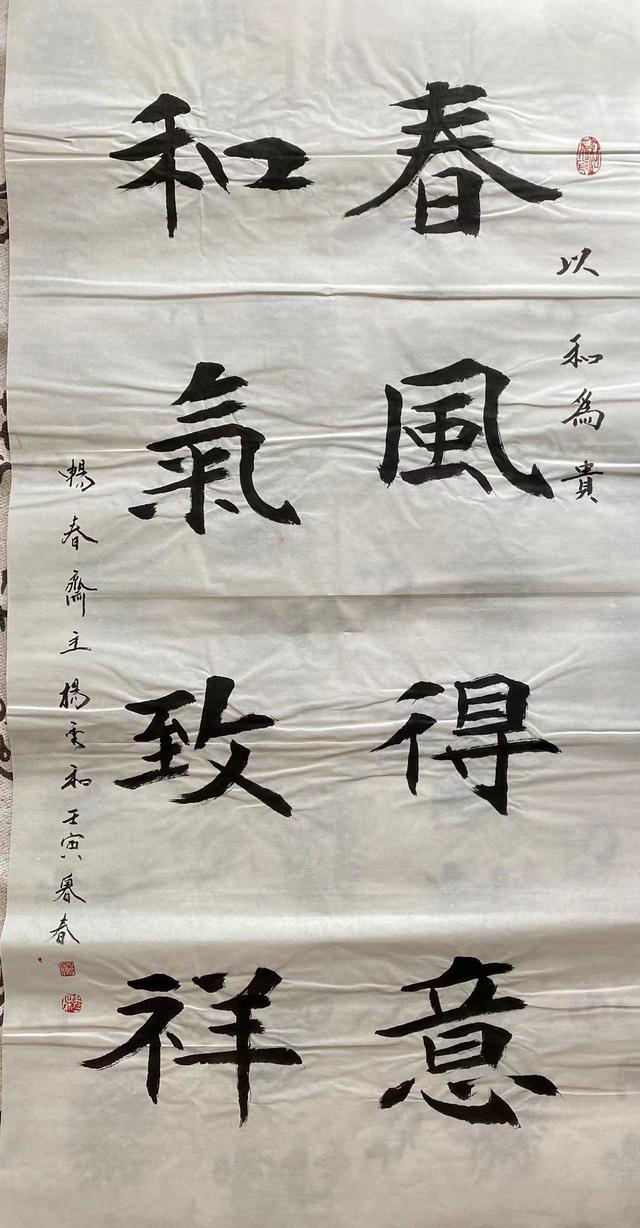 以和為貴
春風得意
和氣致祥
暢春齋主楊雲和壬寅暮春